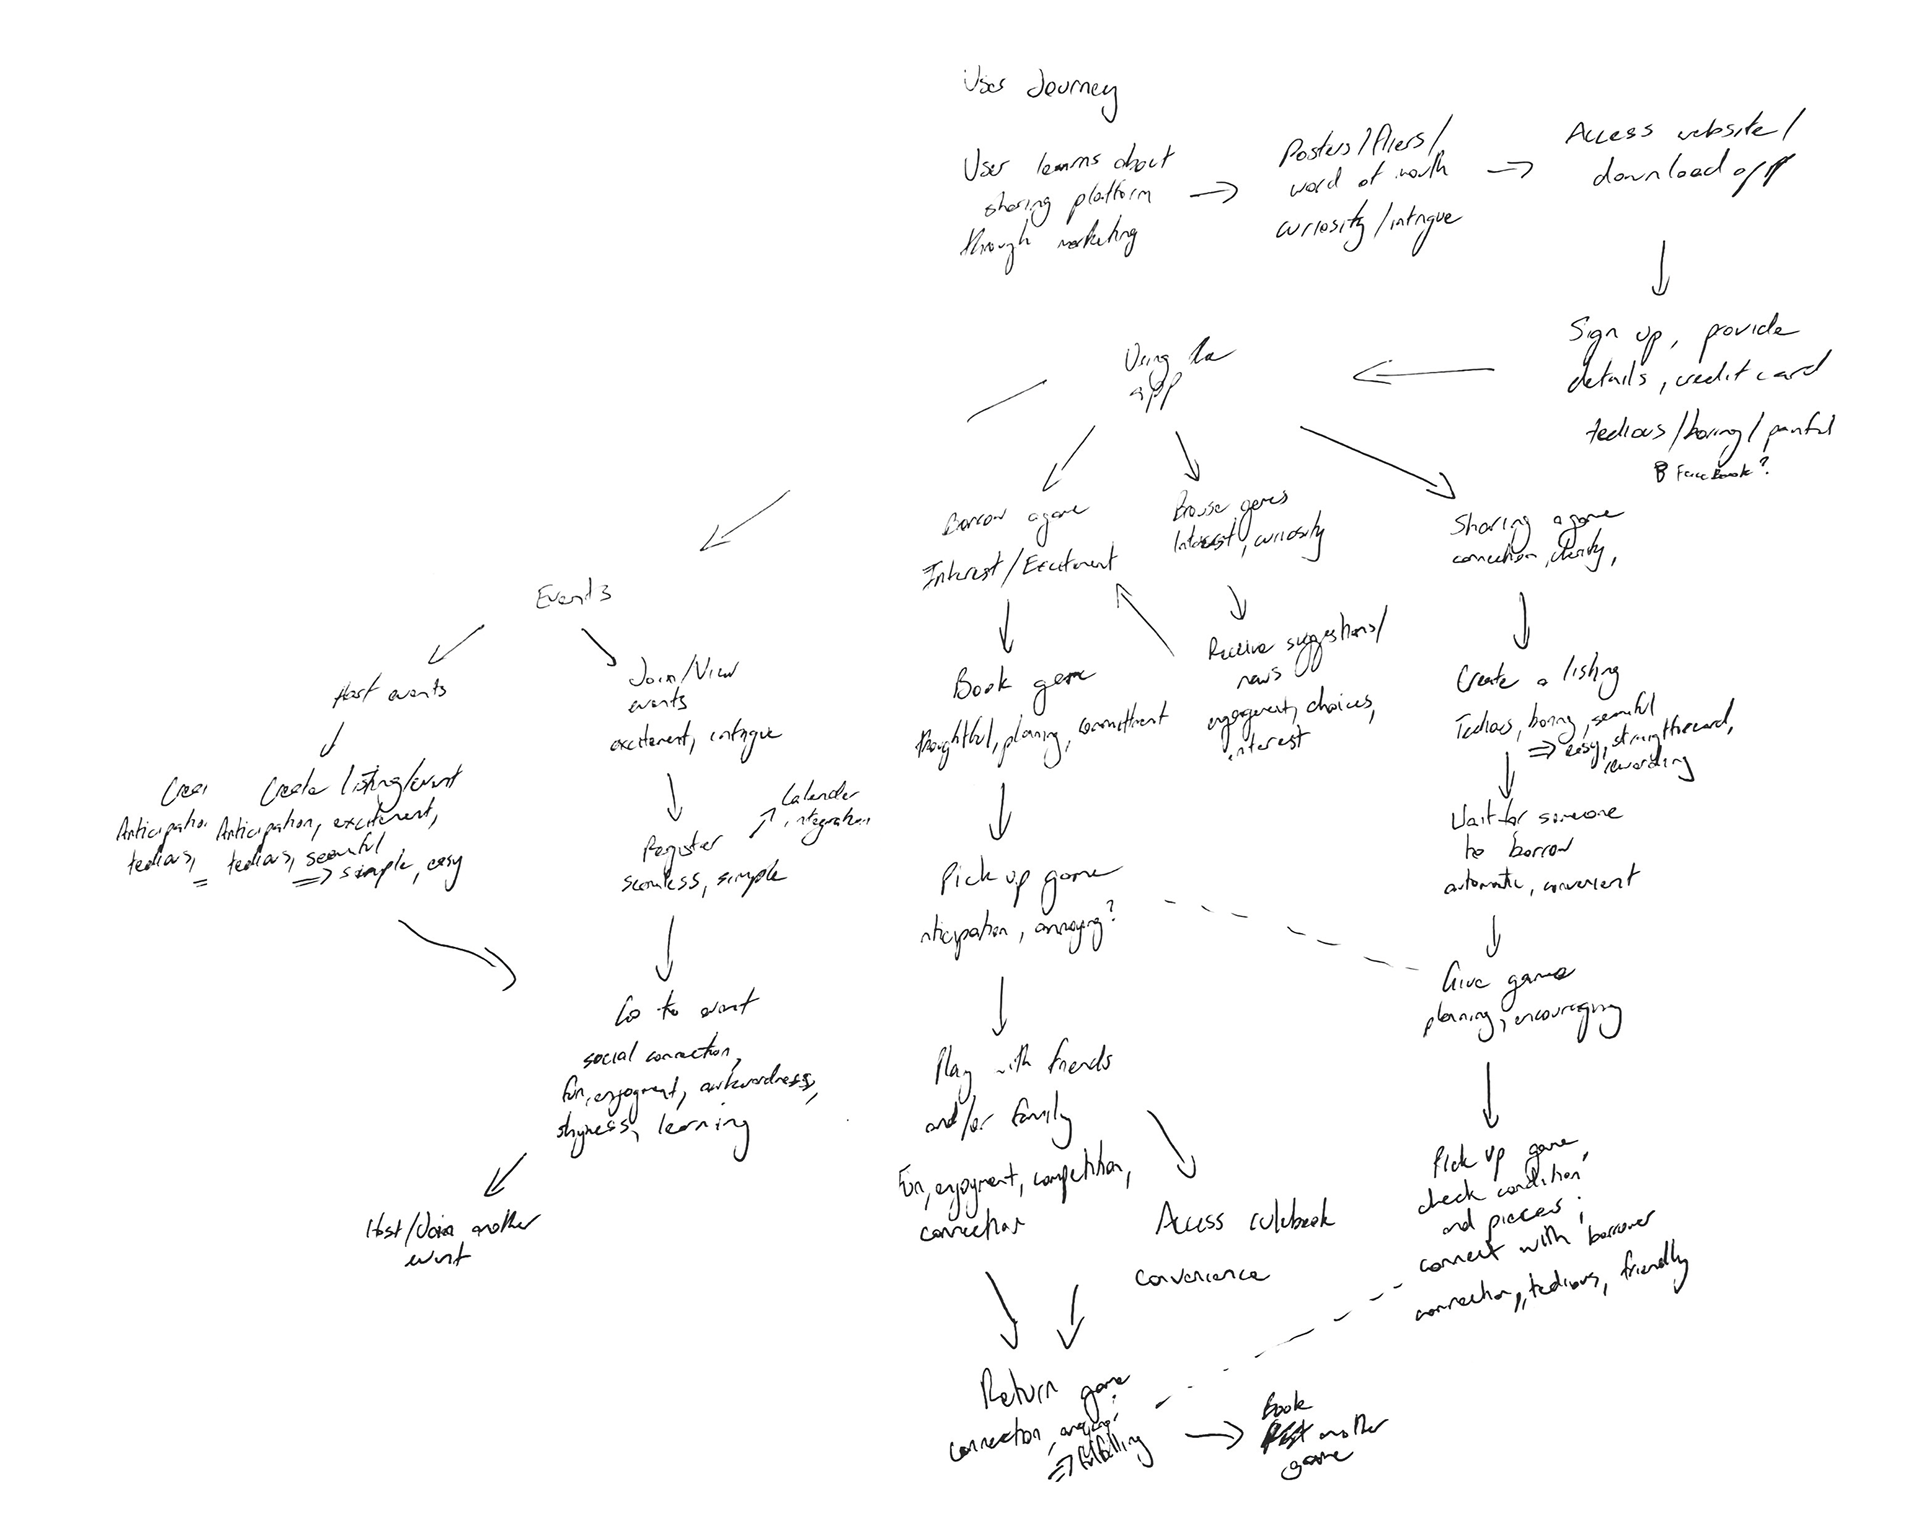 User Journey
User learns about
sharing platform
through marketing
Posters/fliers/
word of mouth
curiosity/intrigue
Access website/
download app
Sign up, provide
details, credit card
tedious/boring/painful
Facebook?
Using the
app
Events
Host events
Creat
Anticipatio
tedious,
Create listing/event
Anticipation, excitement,
tedious,
=> simple, easy
Join/View
events
excitement, intrigue
Register
seamless, simple
Calender
integration
Go to event
social connection,
fun, enjoyment, awkwardness,
shyness, learning
Host/Join another
event
Borrow a game
Interest/Excitement
Book game
thoughtful, planning, committment
Pick up game
nticipation, annoying?
Play with friends
and/or family
Fun, enjoyment, competition,
connection
Access rulebook
convenience
Return game
connection,
=> fulfilling
Book
another
game
Browse games
Interest, curiosity
Receive suggestions/
news
engagement, choices,
interest
Sharing a game
connection,
Create a listing
Tedious, boring,
=> easy, straightforward,
rewarding
Wait for someone
to borrow
automatic, convenient
Give game
planning, encouraging
Pick up game,
check condition
and pieces,
connect with borrower
connection, tedious, friendly